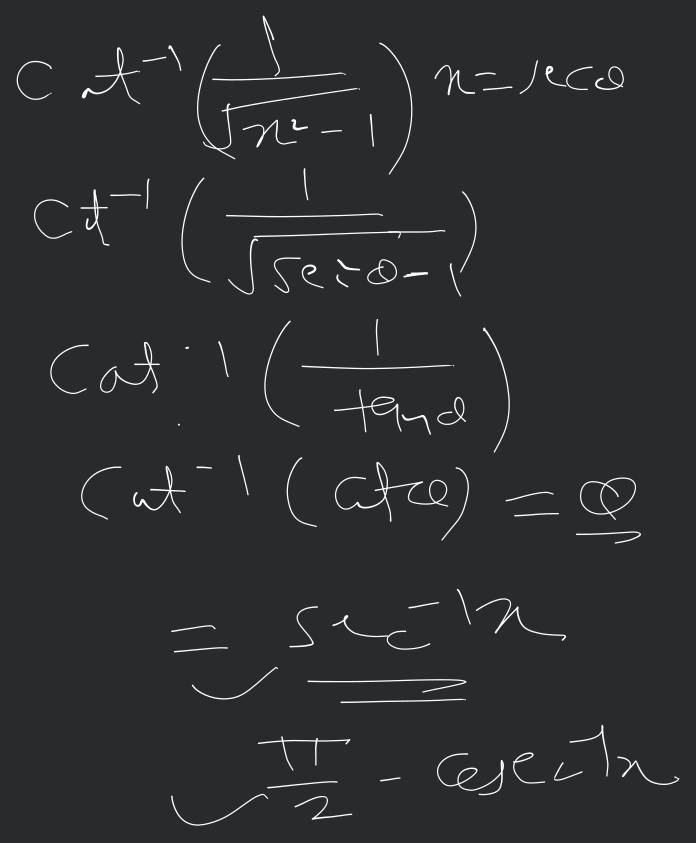 Cot⁻¹(1/√(x²-1)) x=secθ
Cot⁻¹(1/√(sec²θ-1))
Cot⁻¹(1/tanθ)
Cot⁻¹(cotθ) = θ
= sec⁻¹x
π/2 - cosec⁻¹x